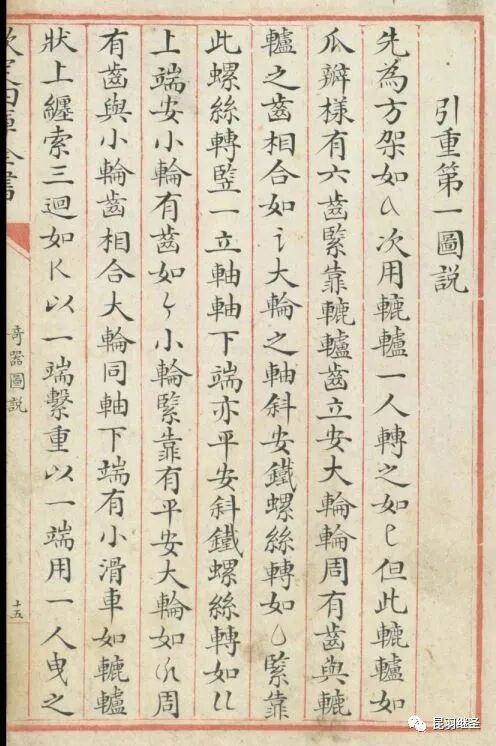 引重第一圖説
先為方架如a次用轆轤一人轉之如e但此轆轤如
瓜辨様有六齒緊靠轆轤齒立安大輪輪周有齒與轆
轤之齒相合如i大輪之軸斜安鐵螺絲轉如o緊靠
此螺絲轉竪一立軸軸下端亦平安斜鐵螺絲轉如u
上端安小輪有齒如y小輪緊靠有平安大輪如h周
有齒與小輪齒相合大輪同軸下端有小滑車如轆轤
狀上纏索三迴如K以一端繫重以一端用一人曳之
欽定四庫全書
奇器圖説
十五
昆羽继圣